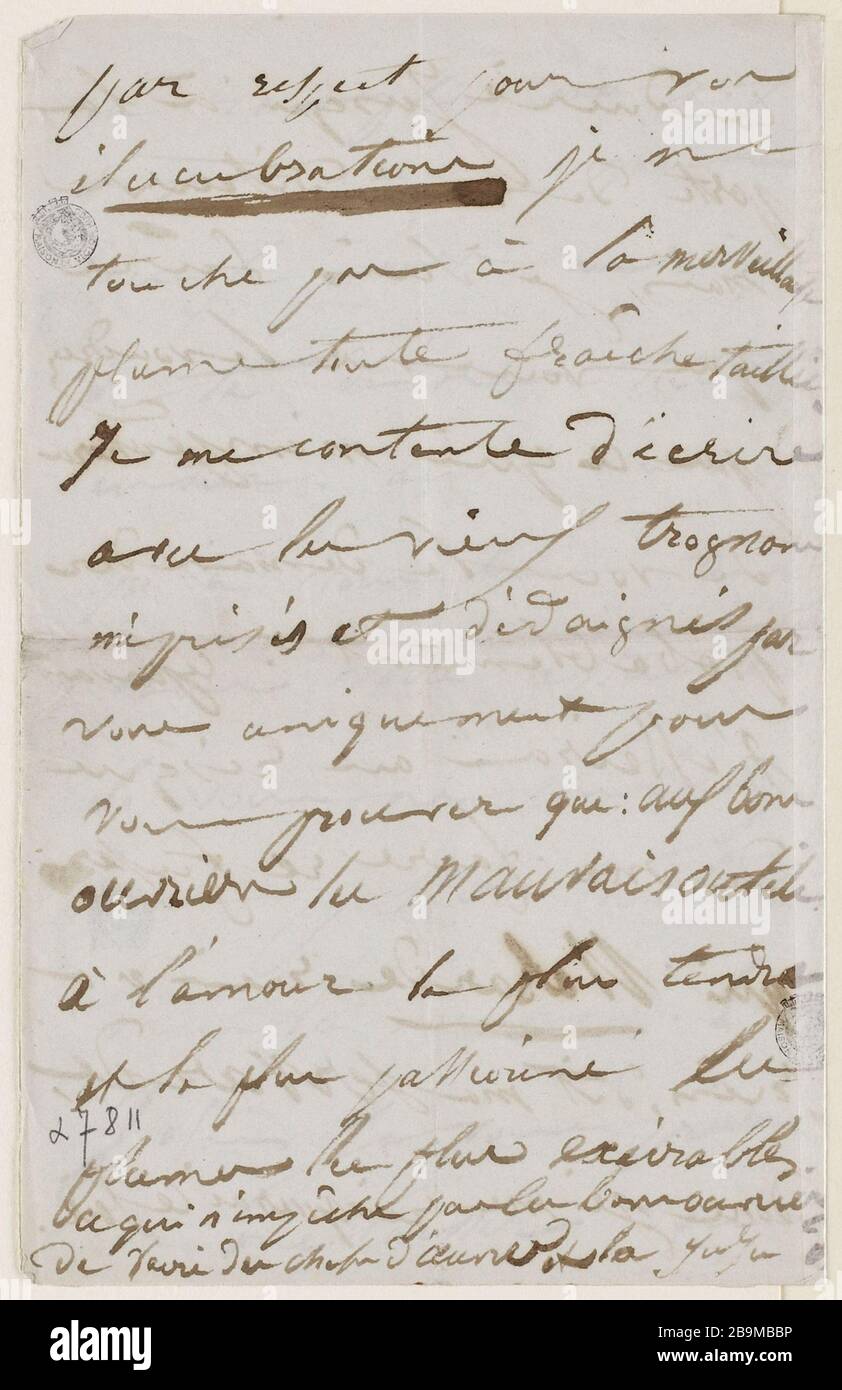 par respect pour vos
élucubrations je ne
touche pas à la merveilleuse
plume toute fraîche taillée.
Je me contente d'écrire
avec les vieux trognons
méprisés et dédaignés par
vous uniquement pour
vous prouver que: aux bons
ouvriers les mauvais outils.
à l'amour le plus tendre
et le plus passionné les
plumes les plus exécrables,
ce qui n'empêche pas les bons ouvriers
de faire des chefs d'œuvre et la Juju
27811
alamy
Image ID: 2B9MBBP
www.alamy.com